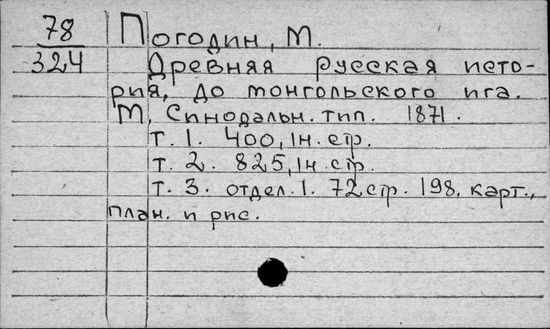 78 Погодин, М.
324 Древняя русская исто-
рия, до монгольского ига.
М, Синодальн. тип. 1871.
т. 1. 400, 1н. стр.
т. 2. 825, 1н. стр.
т. 3. отдел. 1. 72 стр. 198. карт.,
план. и рис.